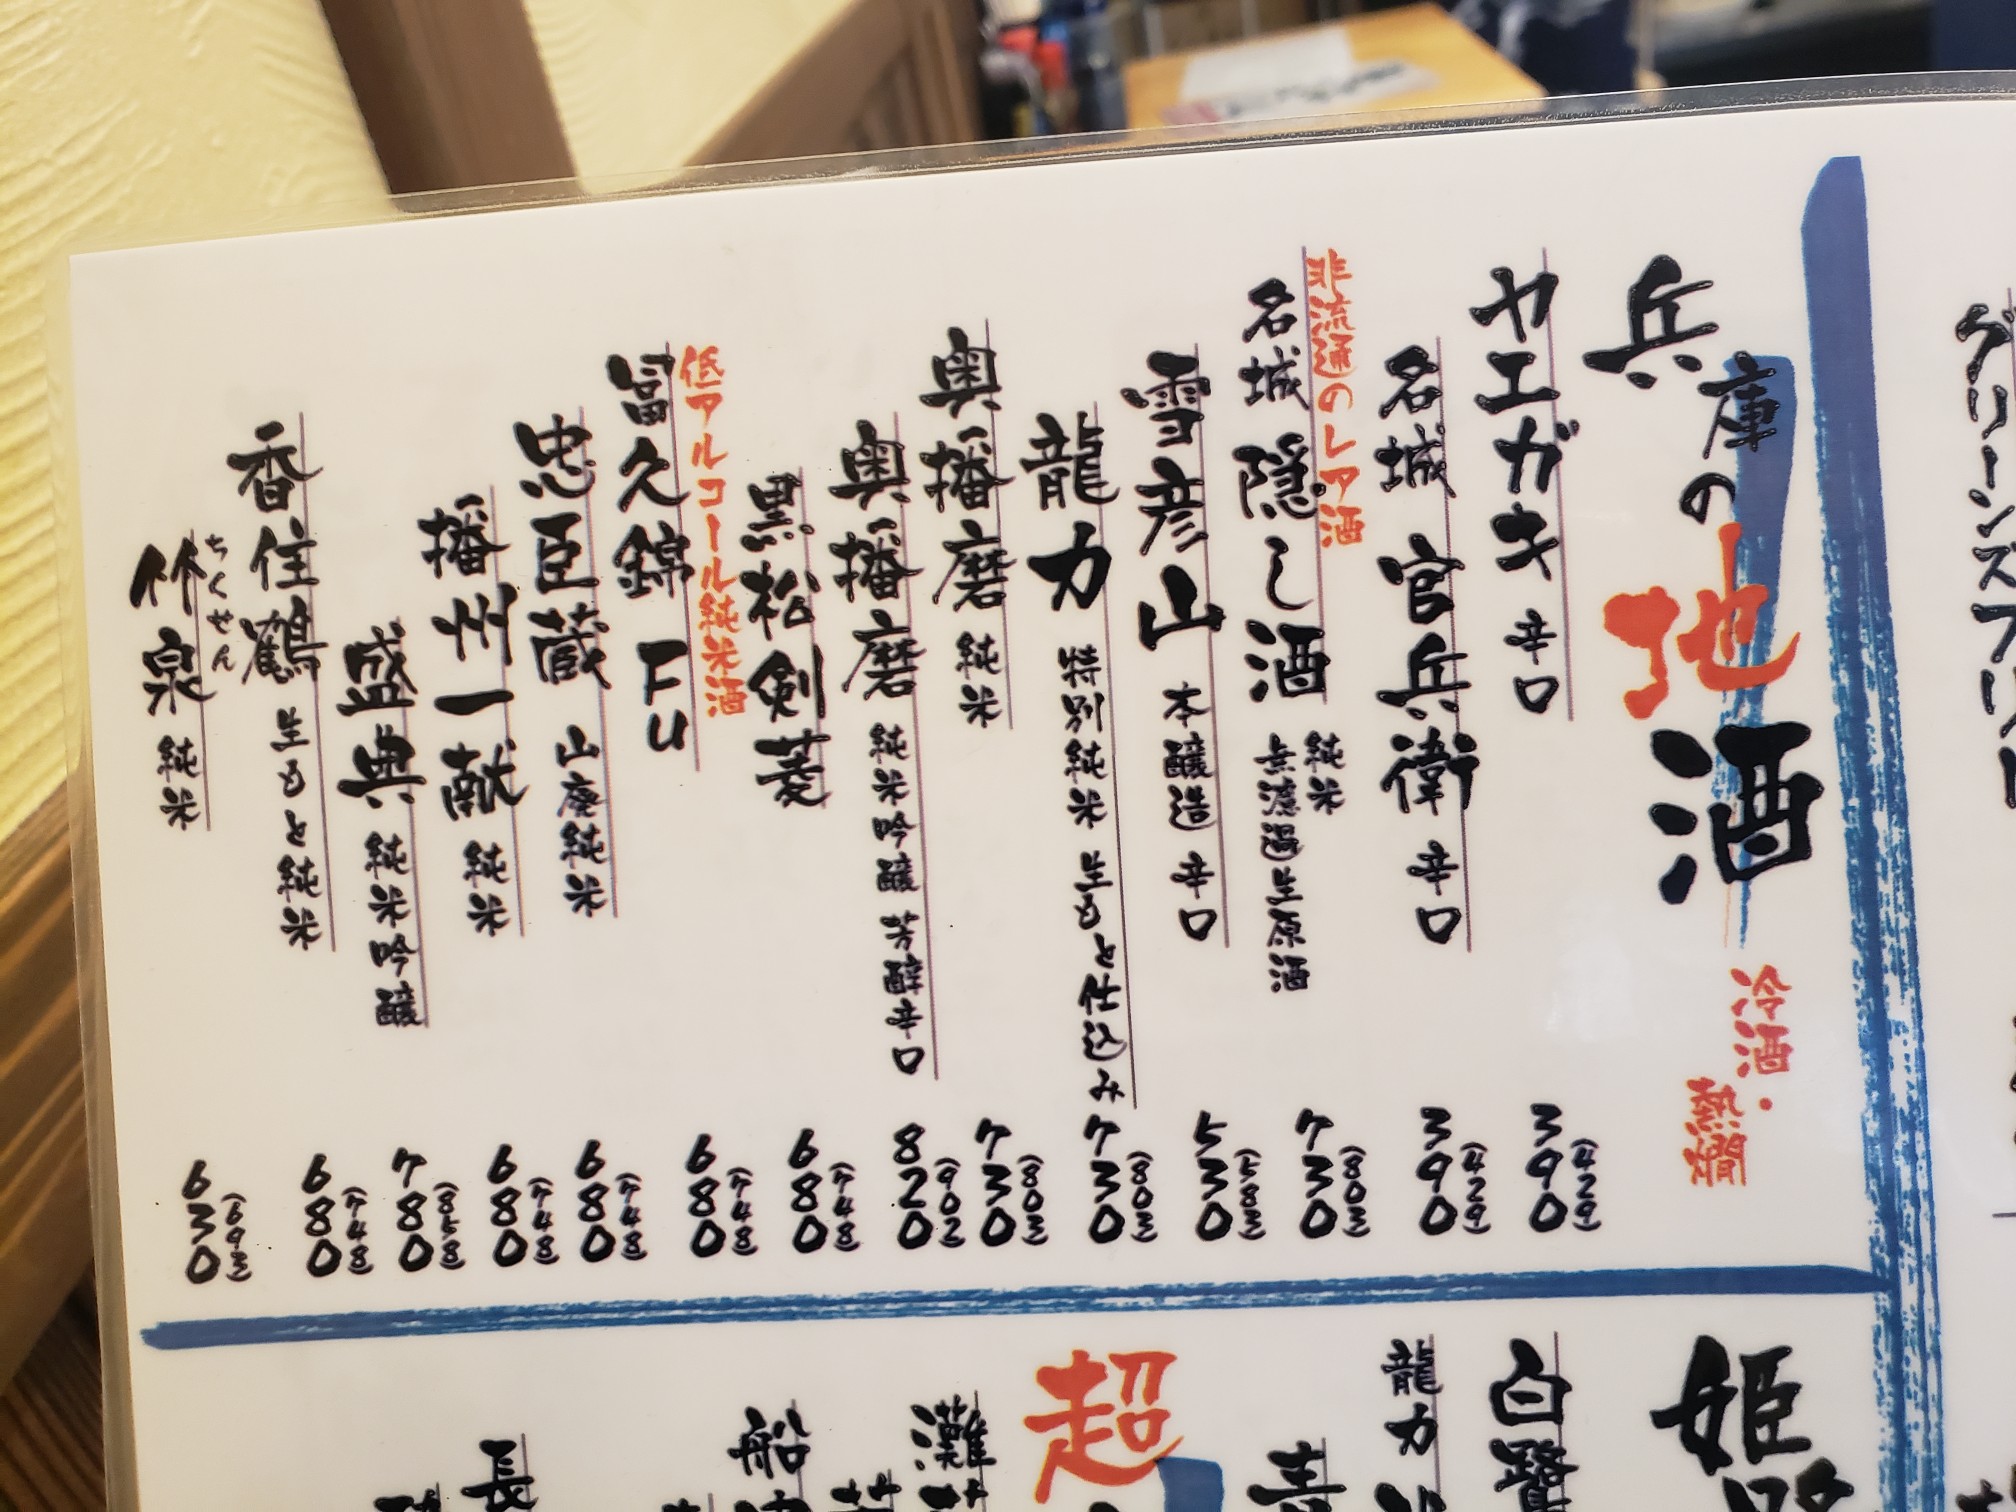 兵庫の地酒 冷酒・熱燗
ヤエガキ 辛口 390 (429)
名城 官兵衛 辛口 390 (429)
非流通のレア酒
名城 隠し酒 純米 無濾過生原酒 730 (803)
雪彦山 本醸造 辛口 530 (583)
龍力 特別純米 生もと仕込み 730 (803)
奥播磨 純米 730 (803)
奥播磨 純米吟醸 芳醇辛口 820 (902)
黒松剣菱 680 (748)
低アルコール純米酒
富久錦 Fu 680 (748)
忠臣蔵 山廃純米 680 (748)
播州一献 純米 680 (748)
盛典 純米吟醸 780 (858)
香住鶴 生もと純米 680 (748)
ちくせん
竹泉 純米 630 (693)
姫路
白鷺
龍力
超
灘
船
長